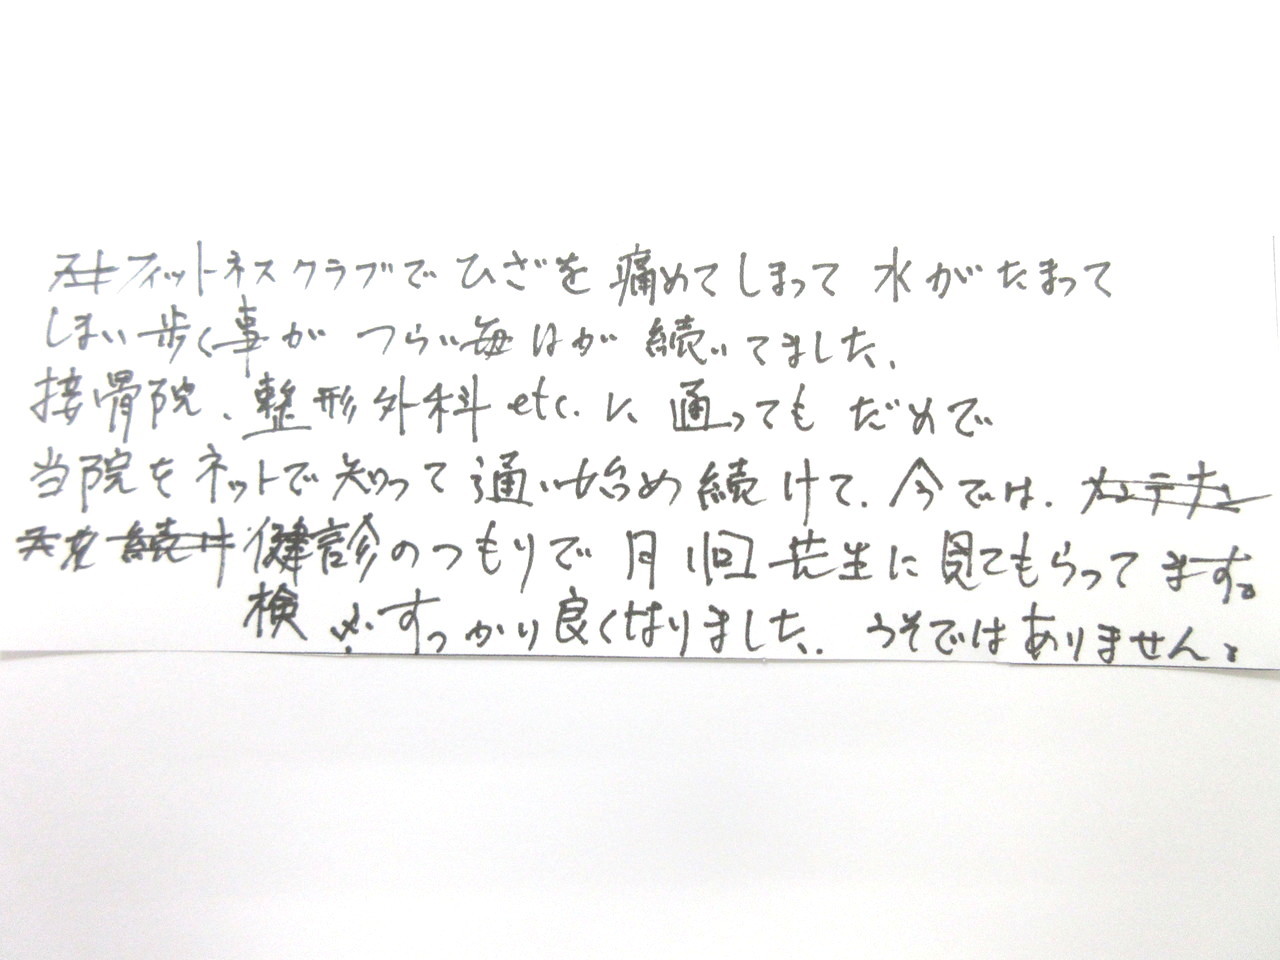 フィットネスクラブでひざを痛めてしまって水がたまって
しまい歩く事がつらい毎日が続いてました。
接骨院、整形外科etc.に通ってもだめで
当院をネットで知って通い始め続けて、今では、メンテナン
スを続け健診のつもりで月1回先生に見てもらってます。
検 ※すっかり良くなりました。うそではありません。